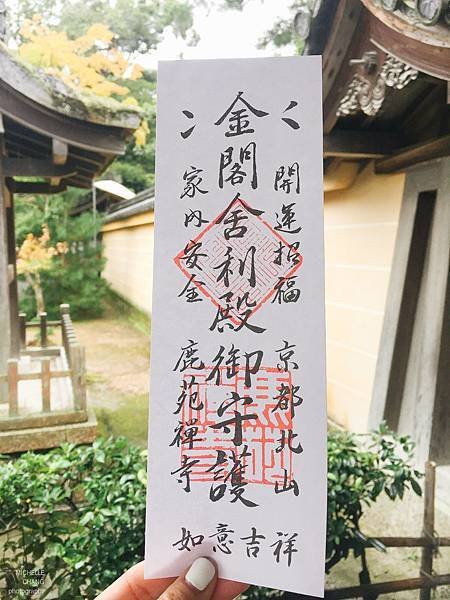 開運招福　京都北山
金閣舍利殿御守護
家内安全　鹿苑禅寺
如意吉祥
MICHELLE
CHANG
photography